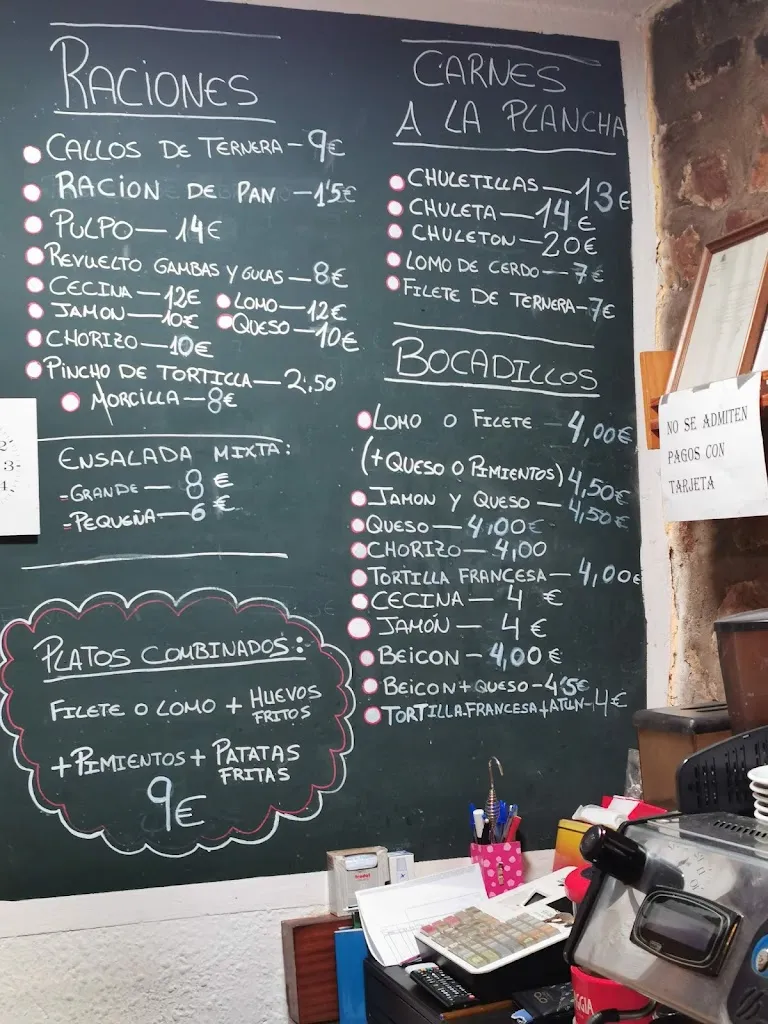 RACIONES
CALLOS DE TERNERA - 9€
RACION DE PAN - 1'5€
PULPO - 14€
REVUELTO GAMBAS Y GULAS - 8€
CECINA - 12€
LOMO - 12€
JAMON - 10€
QUESO - 10€
CHORIZO - 10€
PINCHO DE TORTILLA - 2,50
MORCILLA - 8€
ENSALADA MIXTA:
- GRANDE - 8 €
- PEQUEÑA - 6 €
PLATOS COMBINADOS:
FILETE O LOMO + HUEVOS
FRITOS
+ PIMIENTOS + PATATAS
FRITAS
9€
CARNES
A LA PLANCHA
CHULETILLAS - 13€
CHULETA - 14€
CHULETON - 20€
LOMO DE CERDO - 7€
FILETE DE TERNERA - 7€
BOCADILLOS
LOMO O FILETE - 4,00€
(+ QUESO O PIMIENTOS) 4,50€
JAMON Y QUESO - 4,50€
QUESO - 4,00€
CHORIZO - 4,00
TORTILLA FRANCESA - 4,00€
CECINA - 4 €
JAMÓN - 4 €
BEICON - 4,00€
BEICON + QUESO - 4'5€
TORTILLA.FRANCESA + ATUN - 4€
NO SE ADMITEN
PAGOS CON
TARJETA